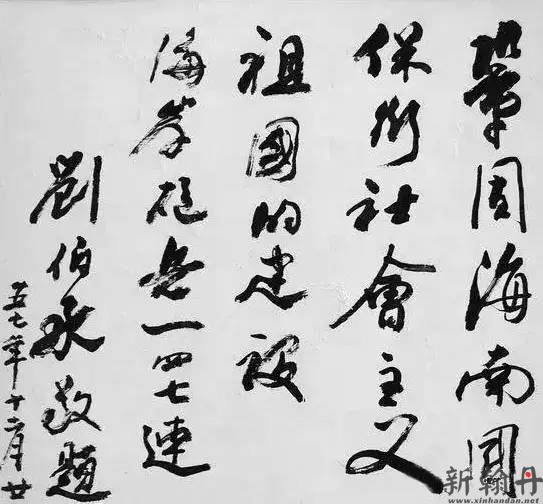 鞏固海南國
保衛社會主义
祖國的建設
海岸砲兵一四七連
劉伯承敬題
五七年十二月廿
新翰丹
www.xinhandan.net